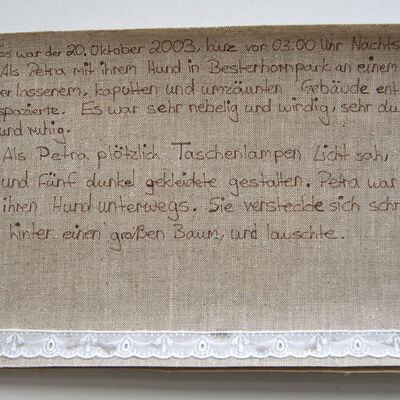 Es war der 20. Oktober 2003, kurz vor 03.00 Uhr Nachts
Als Petra mit ihrem Hund in Besterhornpark an einem
verlassenem, kaputten und umzäunten Gebäude ent
spazierte. Es war sehr nebelig und windig, sehr du
und ruhig.
Als Petra plötzlich Taschenlampen Licht sah,
und fünf dunkel gekleidete gestalten. Petra war
ihren Hund unterwegs. Sie versteckde sich schn
hinter einen großen Baum, und lauschte.